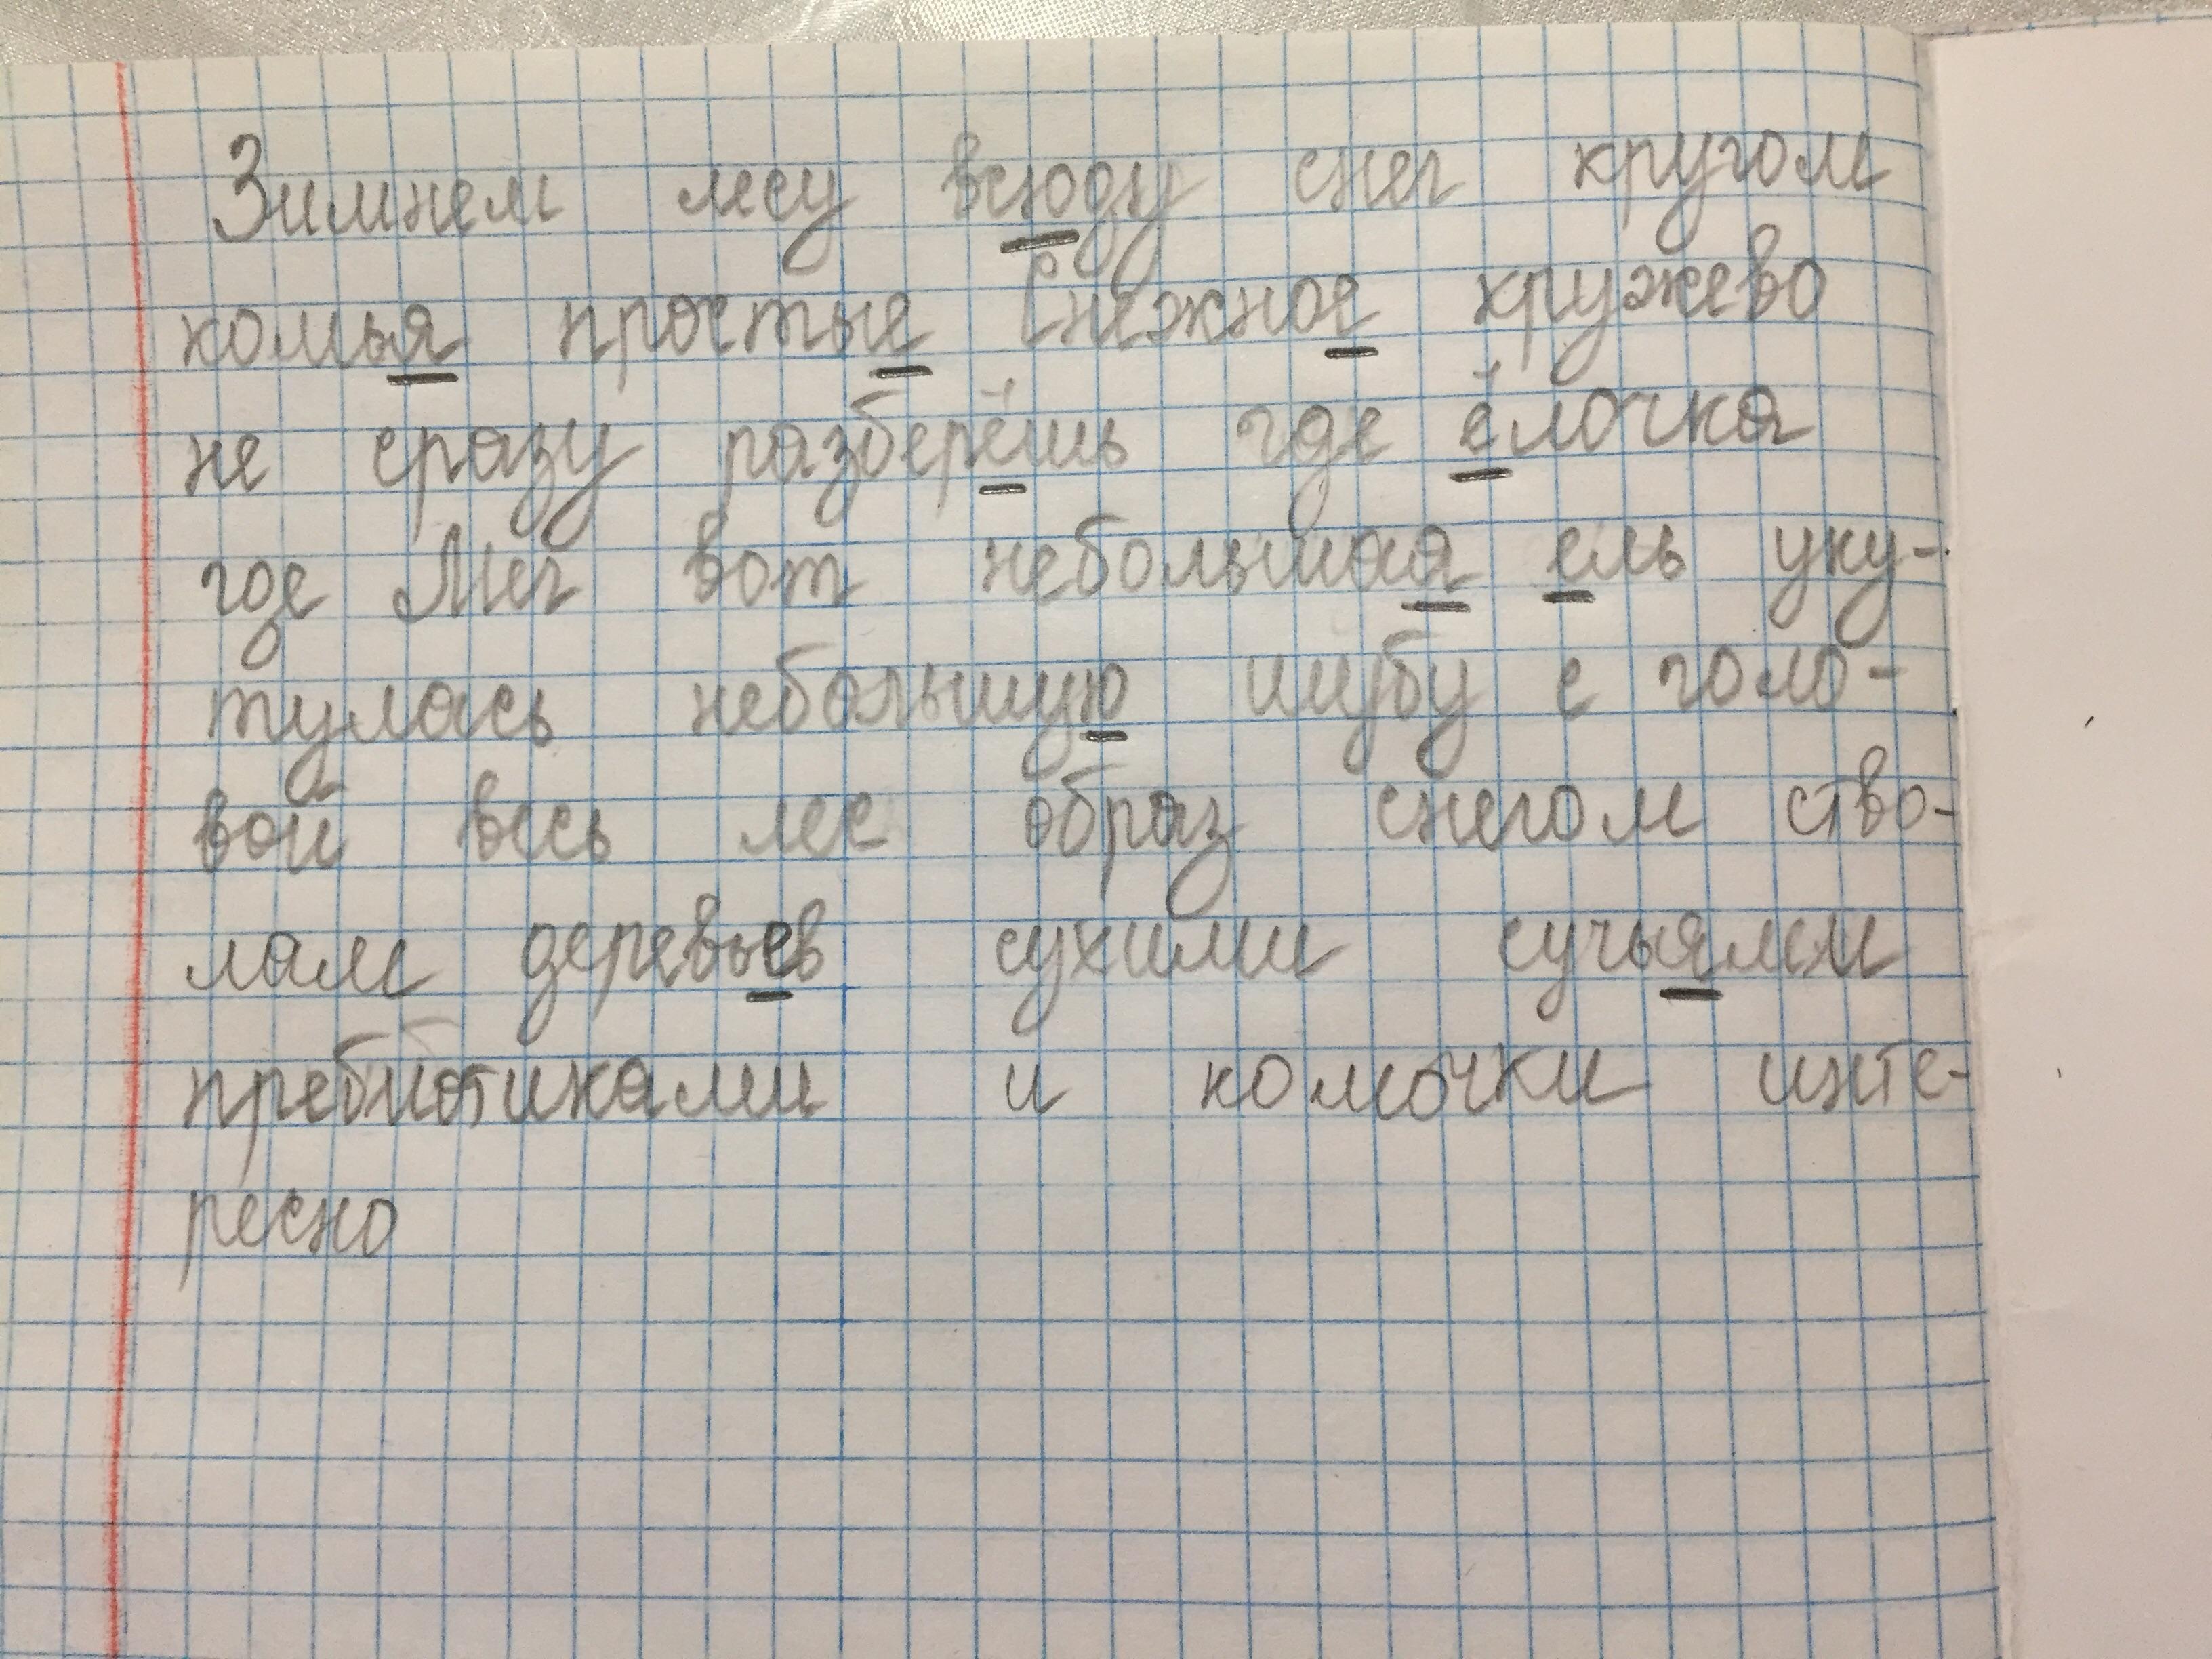 Зимнем лесу всюду снег кругом
комья простые Снежное кружево
не сразу разберёшь где ёлочка
где Мег вот небольшая ель уку-
тулась небольшую шубу с голо-
вой весь лес образ снегом ство-
лам деревьев сухими сучьями
пребиотиками и комочки инте-
ресно